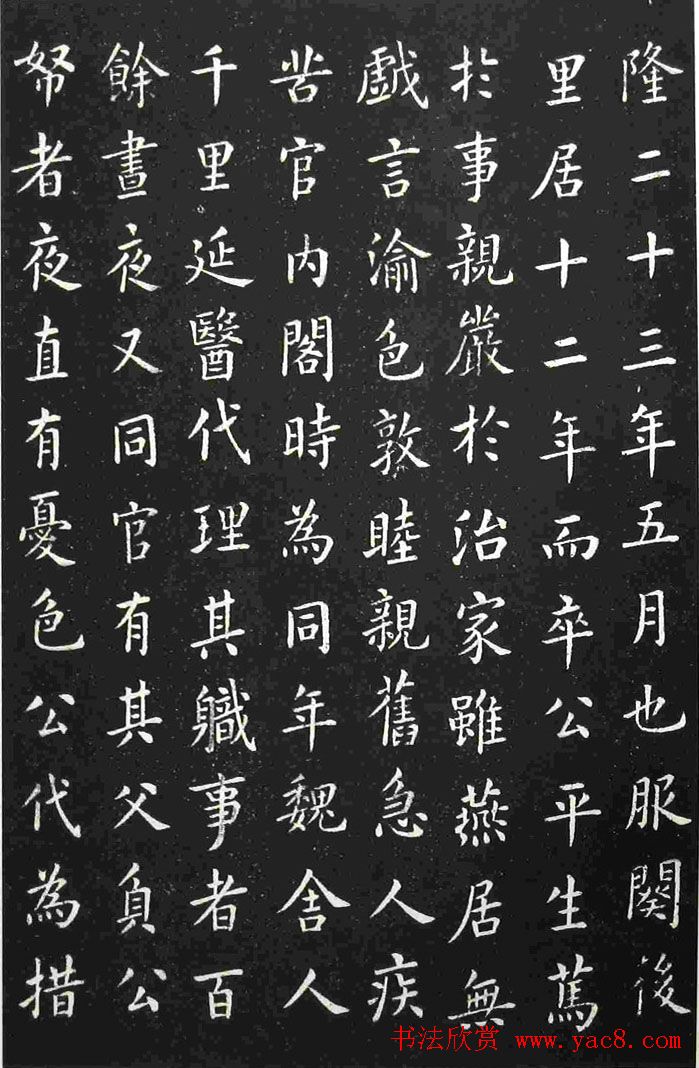 隆二十三年五月也服闋後
里居十二年而卒公平生篤
於事親嚴於治家雖燕居無
戲言渝色敦睦親舊急人疾
苦官內閣時為同年魏舍人
千里延醫代理其職事者百
餘晝夜又同官有其父負公
帑者夜直有憂色公代為措
书法欣赏 www.yac8.com